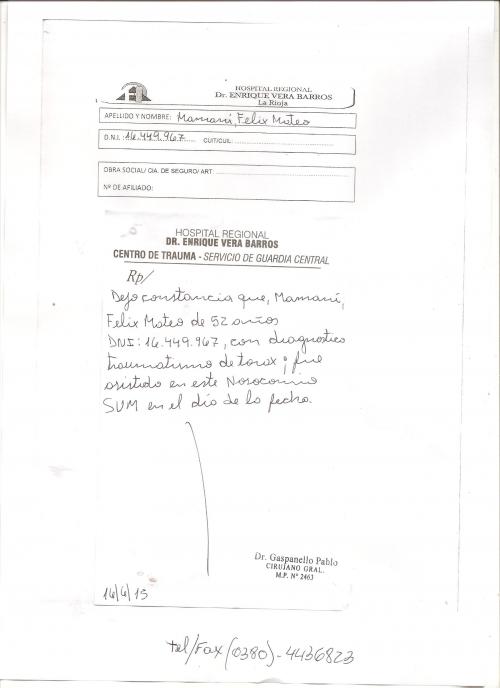 HOSPITAL REGIONAL
Dr. ENRIQUE VERA BARROS
La Rioja
APELLIDO Y NOMBRE: Mamaní, Felix Mateo
D.N.I.: 16.449.967 CUIT/CUIL:
OBRA SOCIAL/ CIA. DE SEGURO/ ART:
Nº DE AFILIADO:
HOSPITAL REGIONAL
DR. ENRIQUE VERA BARROS
CENTRO DE TRAUMA - SERVICIO DE GUARDIA CENTRAL
Rp/
Dejo constancia que, Mamaní,
Felix Mateo de 52 años
DNI: 16.449.967, con diagnostico
traumatismo de torax; fue
asistido en este Nosocomio
SVM en el día de la fecha.
Dr. Gaspanello Pablo
CIRUJANO GRAL.
M.P. Nº 2463
14/4/15
Tel/Fax (0380)-4436823